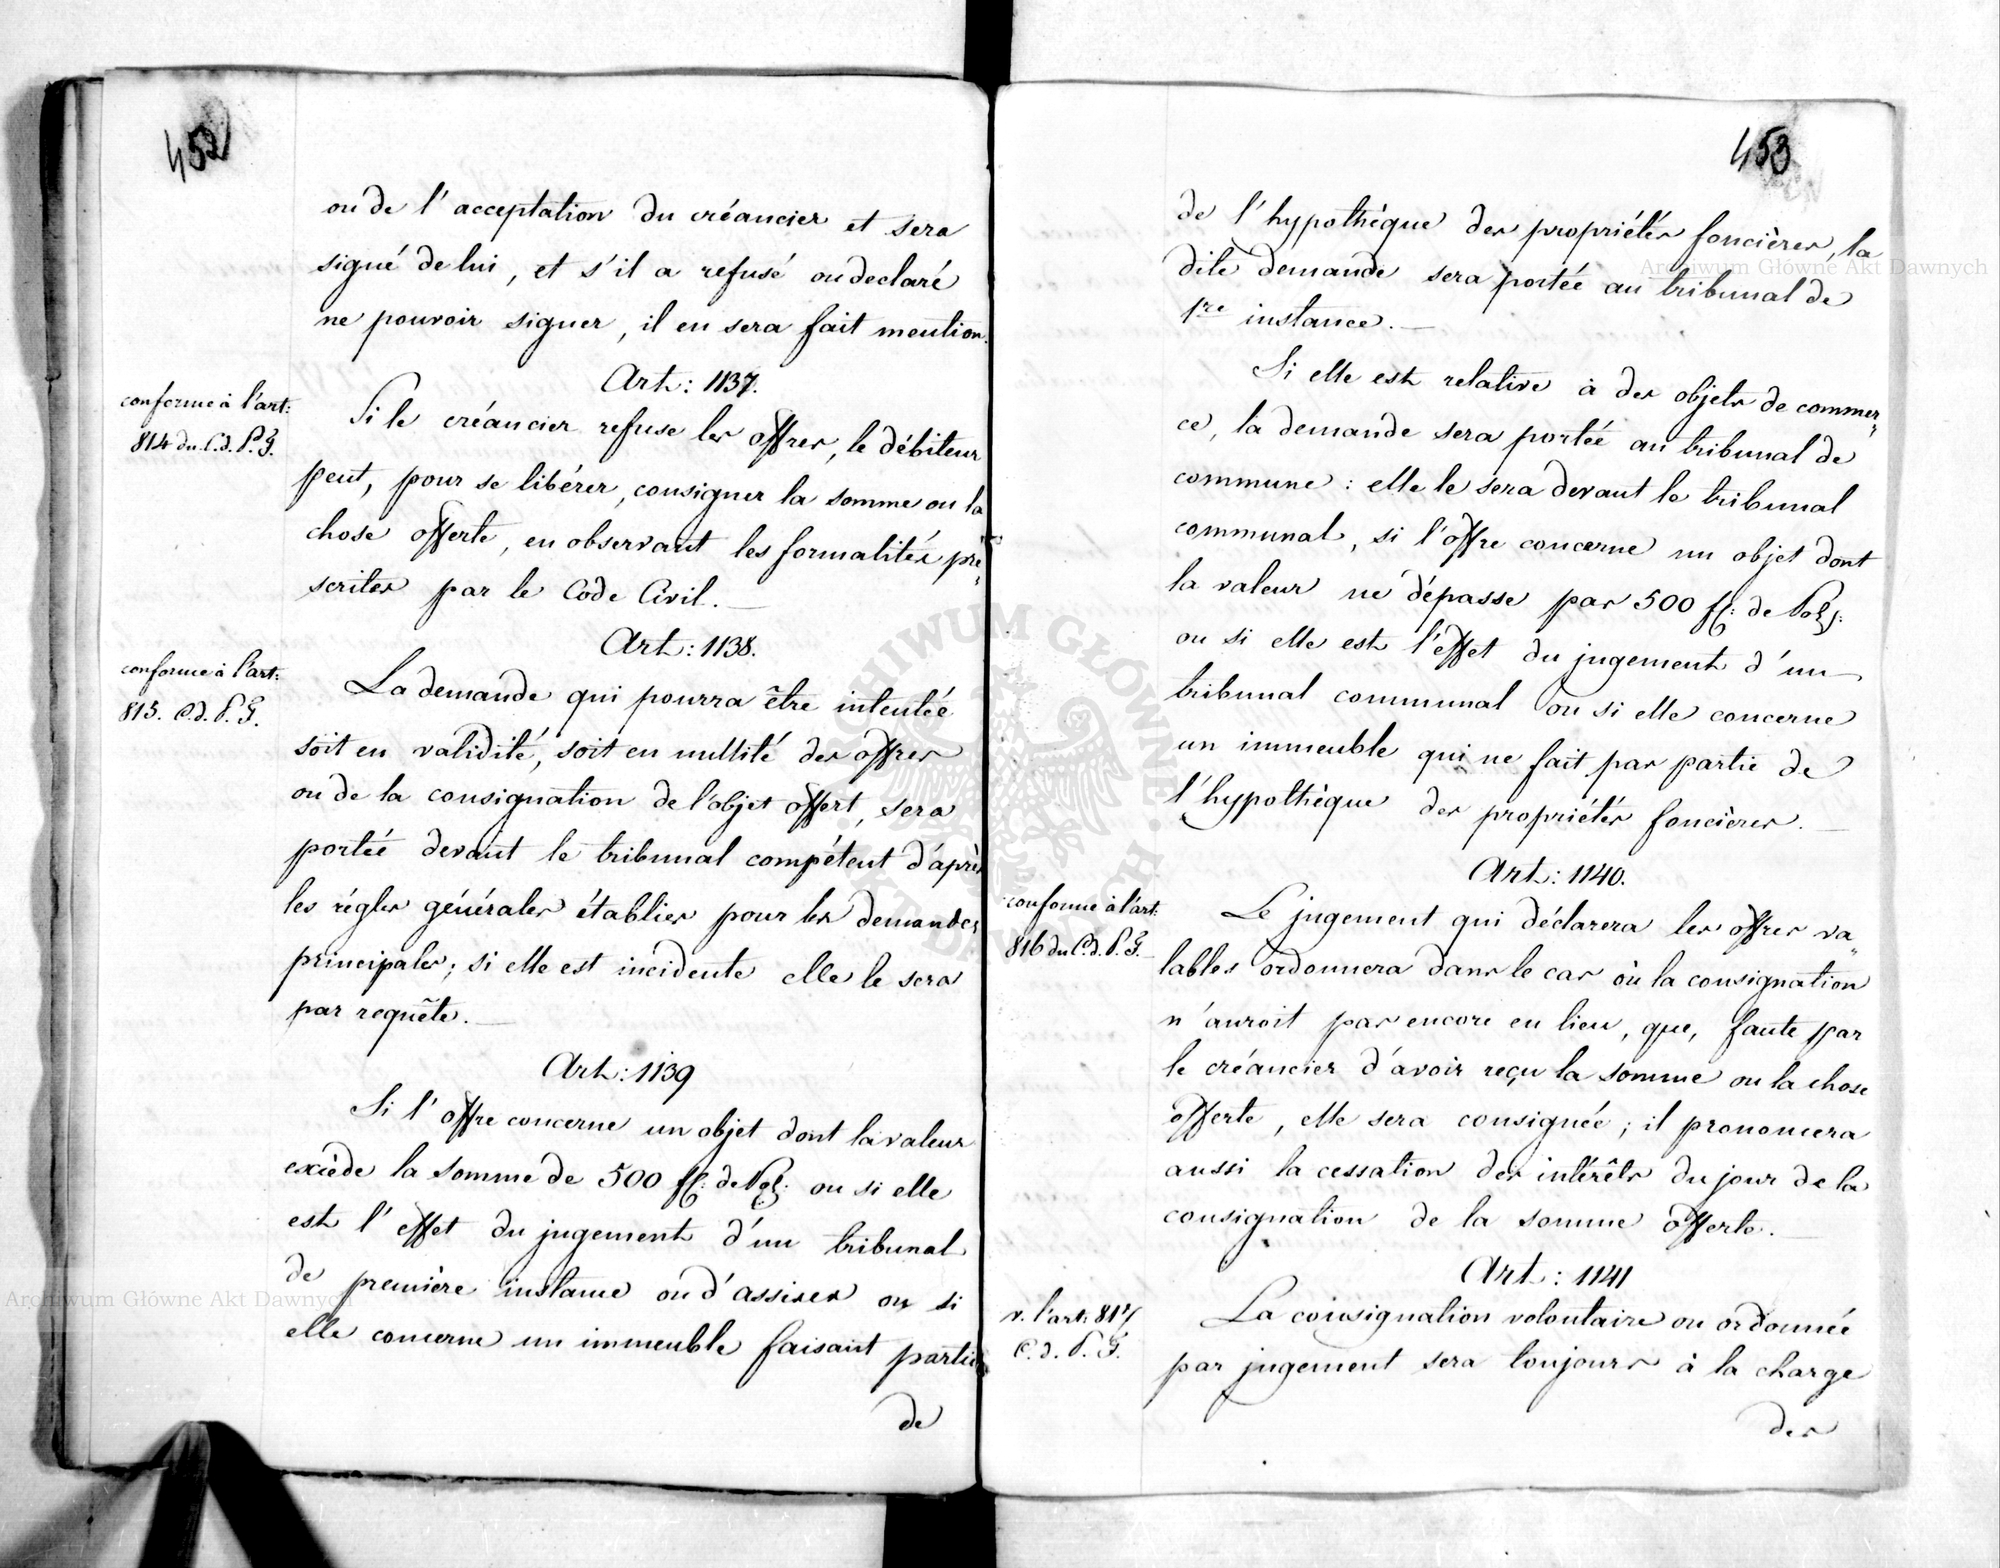 452
ou de l'acceptation du créancier et sera
signé de lui, et s'il a refusé ou declaré
ne pouvoir signer, il en sera fait mention.
Art: 1137.
conforme à l'art:
814 du C.d.P.F.
Si le créancier refuse les offres, le débiteur
peut, pour se libérer, consigner la somme ou la
chose offerte, en observant les formalités pre„
scrites par le Code Civil.
Art: 1138.
conforme à l'art:
815. C.d.P.F.
La demande qui pourra être intentée
soit en validité, soit en nullité des offres
ou de la consignation de l'objet offert, sera
portée devant le tribunal compétent d'après
les régles générales établies pour les demandes
principales; si elle est incidente elle le sera
par requête.
Art: 1139
Si l'offre concerne un objet dont la valeur
excède la somme de 500 fl: de Pol: ou si elle
est l'effet du jugement d'un tribunal
de première instance ou d'assises ou si
elle concerne un immeuble faisant partie
de
453
de l'hypothèque des propriétés foncières, la
dite demande sera portée au tribunal de
1re instance.
Si elle est relative à des objets de commer„
ce, la demande sera portée au tribunal de
commune: elle le sera devant le tribunal
communal, si l'offre concerne un objet dont
la valeur ne dépasse pas 500 fl: de Pol:
ou si elle est l'effet du jugement d'un
tribunal communal ou si elle concerne
un immeuble qui ne fait pas partie de
l'hypothèque des propriétés foncières.
Art: 1140.
conforme à l'art:
816 du C.d.P.F.
Le jugement qui déclarera les offres va„
lables ordonnera dans le cas où la consignation
n'auroit pas encore eu lieu, que, faute par
le créancier d'avoir reçu la somme ou la chose
offerte, elle sera consignée; il prononcera
aussi la cessation des intérêts du jour de la
consignation de la somme offerte.
Art: 1141
v. l'art: 817
C.d.P.F.
La consignation volontaire ou ordonnée
par jugement sera toujours à la charge
des
Archiwum Główne Akt Dawnych
Archiwum Główne Akt Dawnych